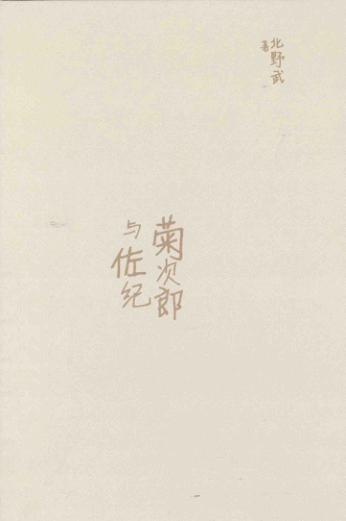 北野武
著
菊次郎
与佐纪